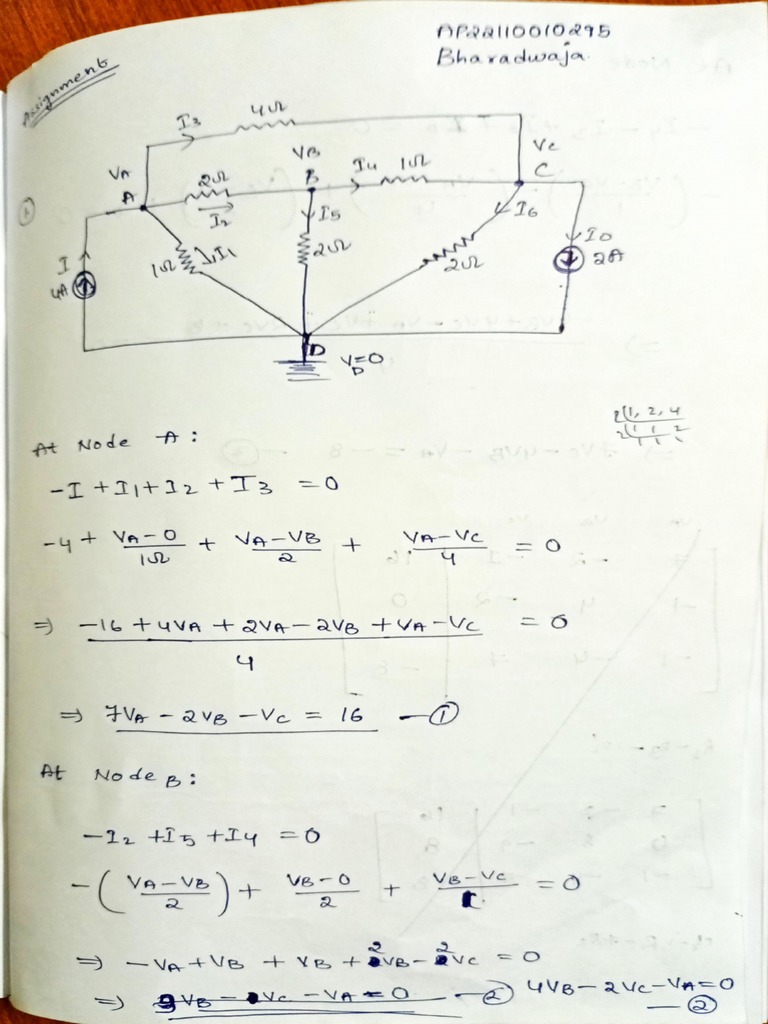 AP22110010295
Bharadwaja.
Assignment
I3 4Ω
VA
A
2Ω
I2
VB
B
I4 1Ω
VC
C
I
4A
1Ω
I1
I5
2Ω
I6
2Ω
I0
2A
D
VD=0
2|1, 2, 4
2|1 1 2
1 1 1
At Node A:
-I + I1 + I2 + I3 = 0
-4 + (VA-0)/1Ω + (VA-VB)/2 + (VA-VC)/4 = 0
⇒ (-16 + 4VA + 2VA - 2VB + VA - VC)/4 = 0
⇒ 7VA - 2VB - VC = 16 —①
At Node B:
-I2 + I5 + I4 = 0
-((VA-VB)/2) + (VB-0)/2 + (VB-VC)/1 = 0
⇒ -VA + VB + VB + 2VB - 2VC = 0
⇒ VB - VC - VA = 0 —② 4VB - 2VC - VA = 0
—②